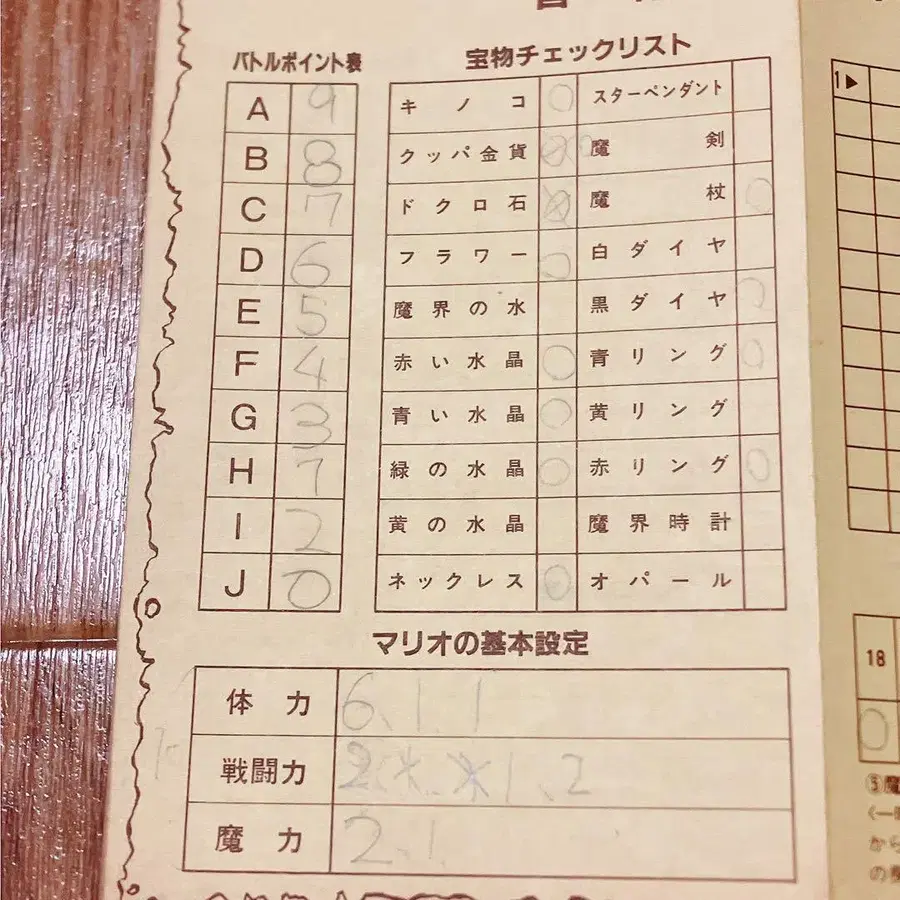 バトルポイント表
A 9
B 8
C 7
D 6
E 5
F 4
G 3
H 7
I 2
J 0
宝物チェックリスト
キノコ ○ スターペンダント
クッパ金貨 魔剣
ドクロ石 魔杖 ○
フラワー ○ 白ダイヤ
魔界の水 黒ダイヤ ○
赤い水晶 ○ 青リング ○
青い水晶 ○ 黄リング
緑の水晶 ○ 赤リング ○
黄の水晶 魔界時計
ネックレス ○ オパール
マリオの基本設定
体力 6、1 1
戦闘力 1、2
魔力 2、1
1▶
18
○
⑤魔
から